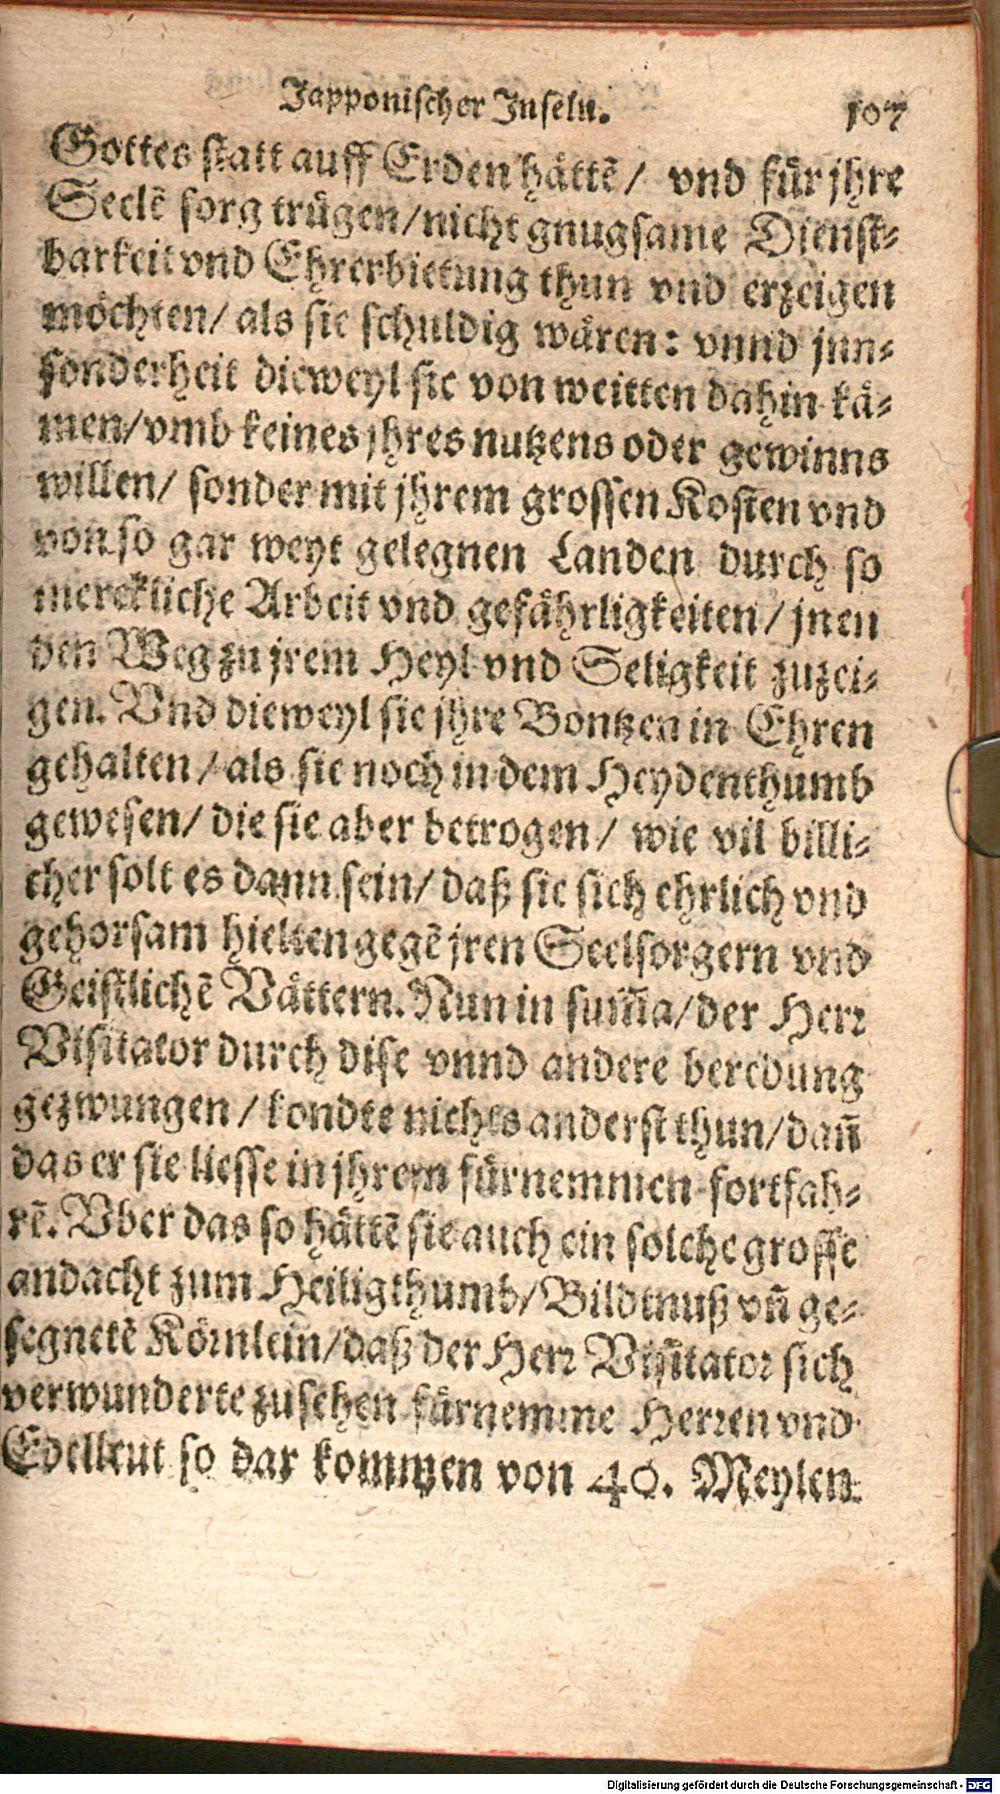 Japponischer Inseln. 107
Gottes statt auff Erden hättẽ / vnd für jhre
Seelẽ sorg trügen/nicht gnugsame Dienst-
barkeit vnd Ehrerbietung thun vnd erzeigen
möchten/ als sie schuldig wären: vnnd jnn-
sonderheit dieweyl sie von weitten dahin kä-
men/vmb keines jhres nutzens oder gewinns
willen/ sonder mit jhrem grossen Kosten vnd
von so gar weyt gelegnen Landen durch so
merckliche Arbeit vnd gefährligkeiten/ jnen
den Weg zu jrem Heyl vnd Seligkeit zuzei-
gen. Vnd dieweyl sie jhre Bontzen in Ehren
gehalten / als sie noch in dem Heydenthumb
gewesen/ die sie aber betrogen/ wie vil billi-
cher solt es dann sein/ daß sie sich ehrlich vnd
gehorsam hielten gegẽ jren Seelsorgern vnd
Geistlichẽ Vättern. Nun in sum̃a/der Herr
Visitator durch dise vnnd andere beredung
gezwungen / kondte nichts anderst thun/dañ
das er sie liesse in jhrem fürnemmen fortfah-
rẽ. Vber das so hättẽ sie auch ein solche grosse
andacht zum Heiligthumb/Bildtnuß vñ ge-
segnetẽ Körnlein/daß der Herr Visitator sich
verwunderte zusehen fürnemme Herren vnd
Edelleut so dar kommen von 40. Meylen
Digitalisierung gefördert durch die Deutsche Forschungsgemeinschaft - DFG